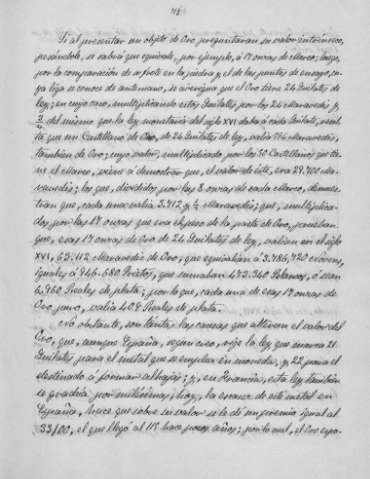 Si al presentar un objeto de Oro preguntaran su valor intrínseco,
pesándole, se sabrá que equivale, por ejemplo, á 17 onzas de Marco; luego,
por la comparación de su frote en la piedra y el de las puntas de ensayo, cu-
ya liga se conoce de antemano, se averigua que el Oro tiene 24 Quilates de
ley; en cuyo caso, multiplicando estos Quilates por los 24 Maravedís y
del mismo que la ley monetaria del siglo XVI daba á cada Quilate, resul-
ta que un Castellano de Oro, de 24 Quilates de ley, valía Maravedís,
también de Oro; cuyo valor, multiplicado por los 50 Castellanos que tie-
ne el Marco, viene á demostrar que, el valor de éste, era 29.700 Ma-
ravedís; los que, divididos por las 8 onzas de cada Marco, demues-
tran que, cada una valía 3.712 y ½ Maravedís; que, multiplica-
dos por las 17 onzas que era el peso de la pasta de Oro, proclaman
que, esas 17 onzas de Oro de 24 Quilates de ley, valían en el siglo
XVI, 63.112 Maravedís de Oro; que equivalían á 3.786.720
iguales á 946.680 Prietos, que sumaban 473.340 Blancas, ó sean
6.960 Reales de plata; por lo que, cada una de esas 17 onzas de
Oro puro, valía 409 Reales de plata.
No obstante, son tantas las causas que alteran el valor del
Oro, que, aunque España, según eso, rige la ley que marca 21
Quilates para el metal que se emplea en moneda, y 22 para el
destinado á formar alhajas; y, en Francia, esta ley también
se gradúa por milésimas; hoy, la escasez de este metal en
España, hace que sobre su valor se le dé un premio igual al
33/00, el que llegó al 115 hace pocos años; por lo cual, el Oro espa-